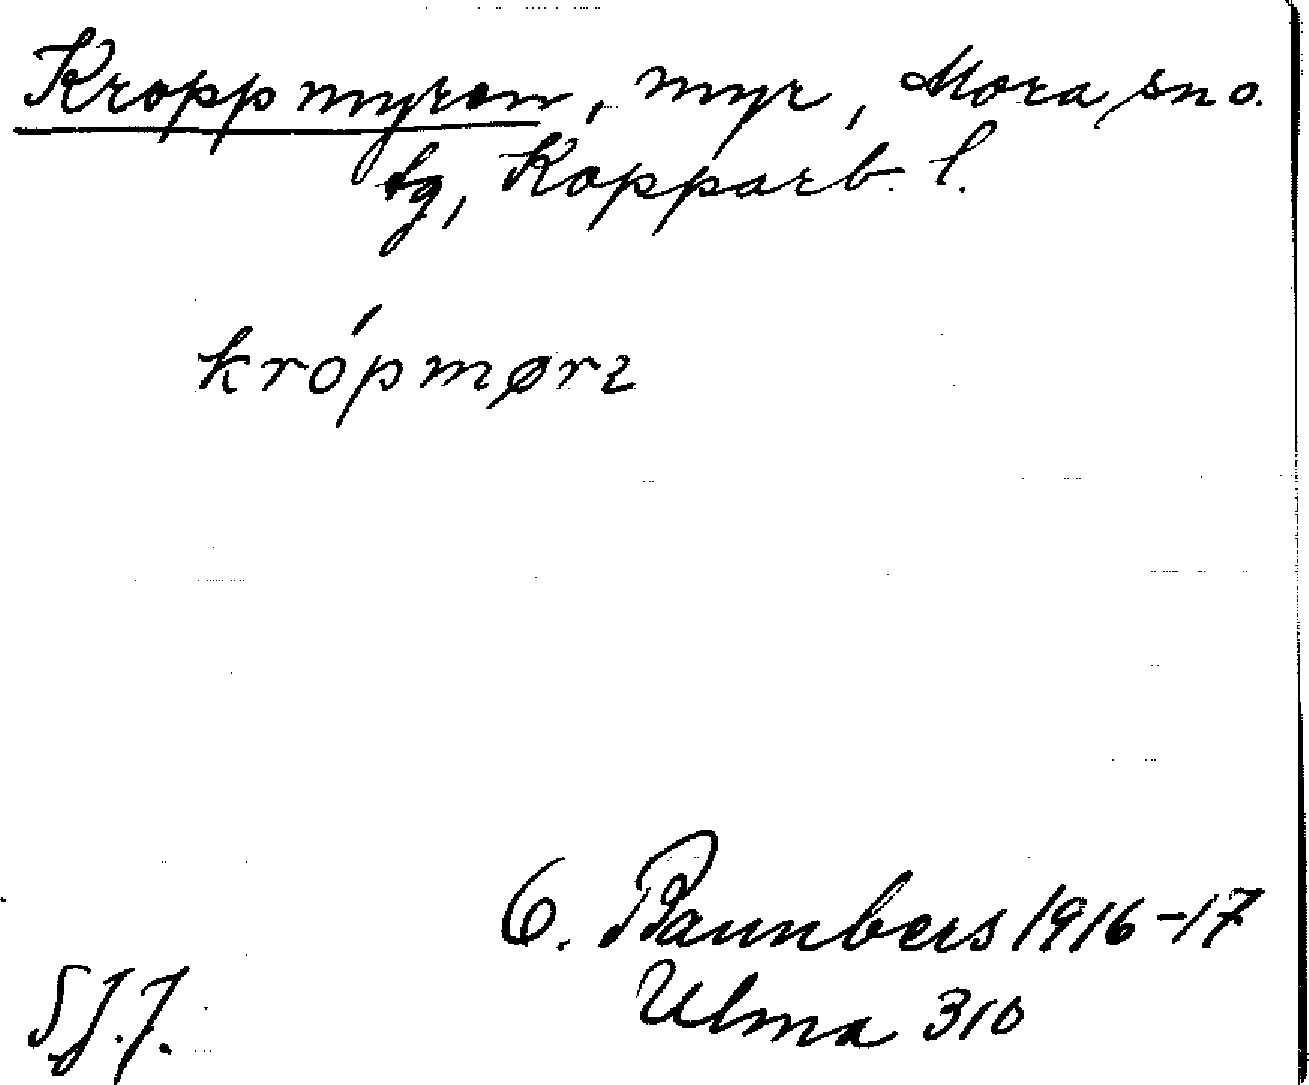 Kroppmyren, myr, Mora sn o.
tg, Kopparb. l.
krópmørz
O. Baunbers 1916-17
Ulma 310